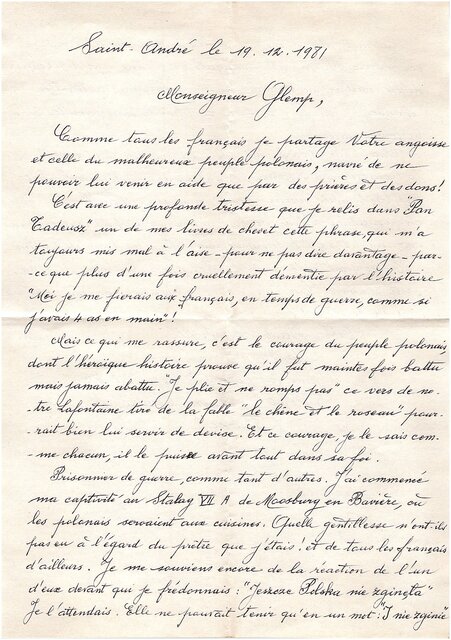 Saint-André le 19.12.1981
Monseigneur Glemp,
Comme tous les français je partage Votre angoisse
et celle du malheureux peuple polonais, navré de ne
pouvoir lui venir en aide que par des prières et des dons!
C'est avec une profonde tristesse que je relis dans "Pan
Tadeusz" un de mes livres de chevet cette phrase, qui m'a
toujours mis mal à l'aise - pour ne pas dire davantage - par-
ce que plus d'une fois cruellement démentie par l'histoire
"Moi je me fierais aux français, en temps de guerre, comme si
j'avais 4 as en main"!
Mais ce qui me rassure, c'est le courage du peuple polonais
dont l'héroïque histoire prouve qu'il fut maintes fois battu
mais jamais abattu. "Je plie et ne romps pas" ce vers de no-
tre Lafontaine tiré de la fable "le chêne et le roseau" pour-
rait bien lui servir de devise. Et ce courage, je le sais com-
me chacun, il le puise avant tout dans sa foi.
Prisonnier de guerre, comme tant d'autres. J'ai commencé
ma captivité au Stalag VII A de Moosburg en Bavière, où
les polonais servaient aux cuisines. Quelle gentillesse n'ont-ils
pas eu à l'égard du prêtre que j'étais! et de tous les français
d'ailleurs. Je me souviens encore de la réaction de l'un
d'eux devant qui je frédonnais: "Jeszcze Polska nie zginęła"
Je l'attendais. Elle ne pouvait tenir qu'en un mot: "I nie zginie"